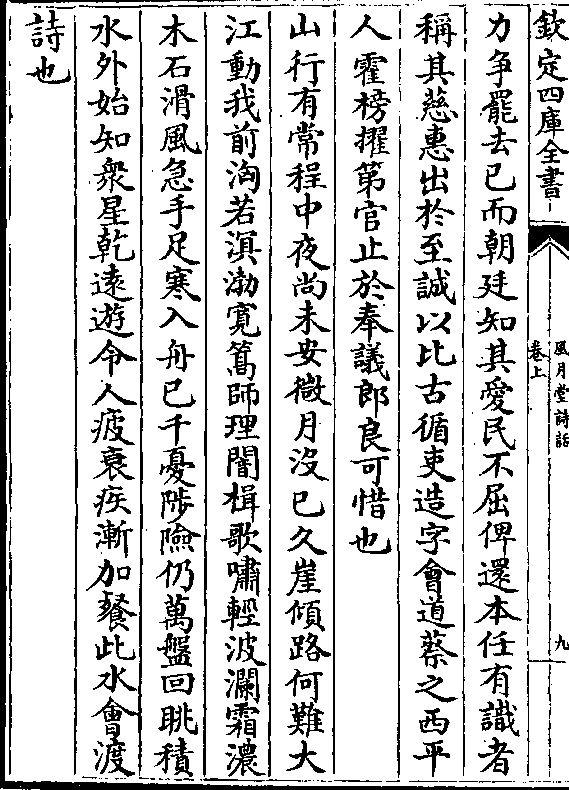 欽定四庫全書
風月堂詩話
卷上
九
力争罷去已而朝廷知其愛民不屈俾還本任有識者
稱其慈惠出於至誠以比古循吏造字㑹道蔡之西平
人霍榜擢第官止於奉議郎良可惜也
山行有常程中夜尚未安微月沒已久崖傾路何難大
江動我前洶若溟渤寛篙師理闇楫歌嘯輕波瀾霜濃
木石滑風急手足寒入舟已千憂陟險仍萬盤回眺積
水外始知衆星乾逺遊令人疲衰疾漸加餐此水㑹渡
詩也